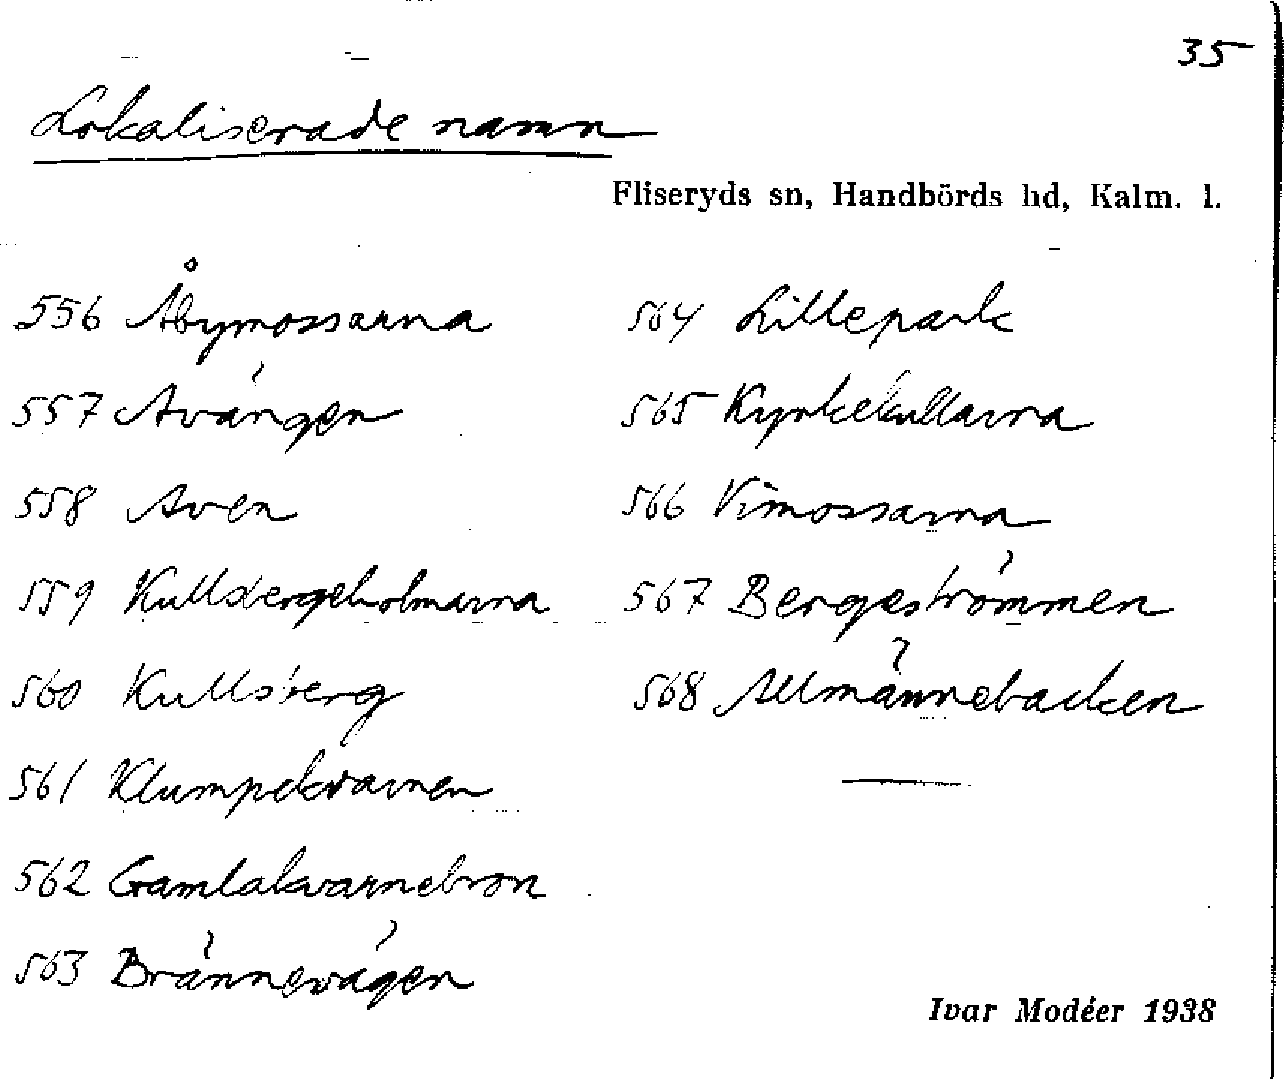 35
Lokaliserade namn
Fliseryds sn, Handbörds hd, Kalm. l.
556 Åbymossarna
557 Avängen
558 Aven
559 Kullsbergeholmarna
560 Kullsberg
561 Klumpekvarnen
562 Gamlakvarnebron
563 Brännevägen
564 Lillepark
565 Kyrkekullarna
566 Vimossarna
567 Bergeströmmen
568 Allmännebacken
Ivar Modéer 1938